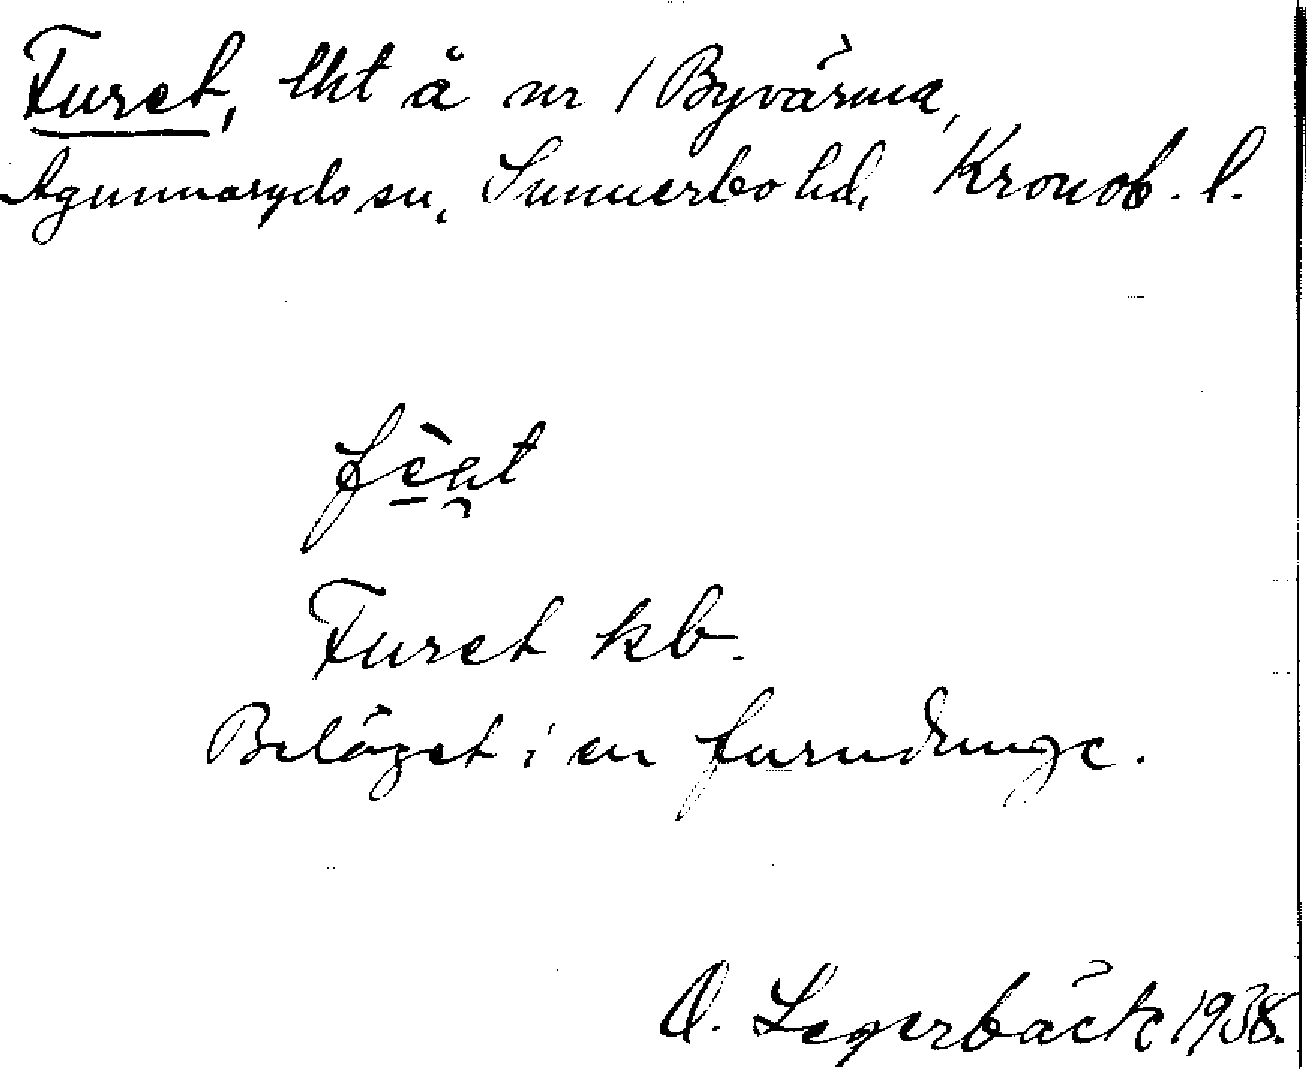 Furet, lht å nr 1 Byvärma,
Agunnaryds sn, Sunnerbo hd, Kronob. l.
Furet kb.
Beläget i en furudunge.
O. Legerbäck 1938.